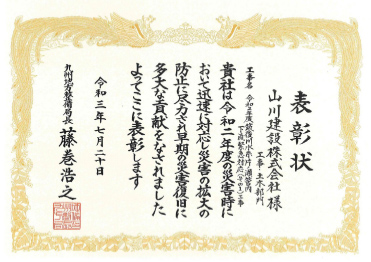 表彰状
工事 土木部門
山川建設株式会社 様
貴社は令和二年度の災害時に
おいて迅速に対応し災害の拡大の
防止に尽力され早期の災害復旧に
多大な貢献をなされました
よってここに表彰します
令和三年七月二十日
九州地方整備局長 藤巻浩之